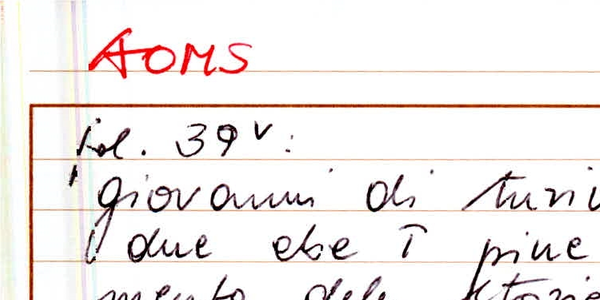 AOMS
fol. 39v:
giovanni di turi
due ebe ī pine
mento dele storie